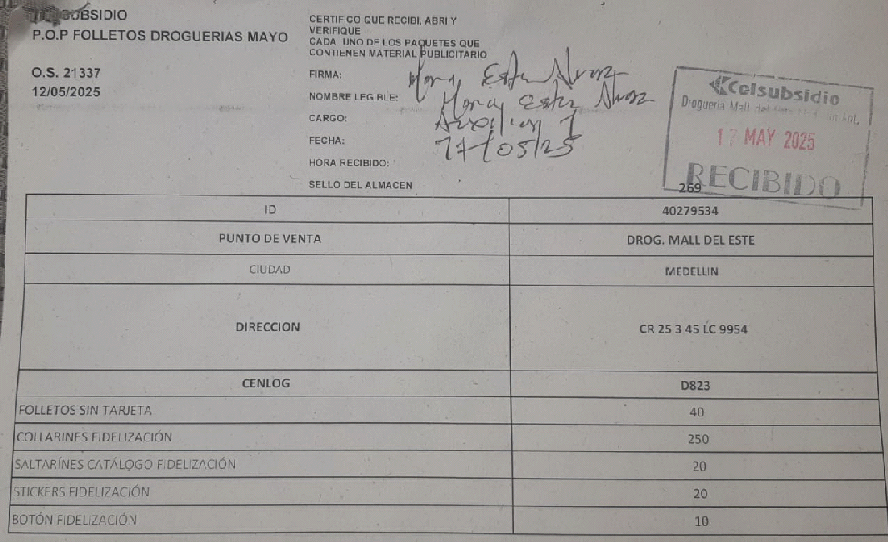 SUBSIDIO
P.O.P FOLLETOS DROGUERIAS MAYO
O.S. 21337
12/05/2025
CERTIFICO QUE RECIBI, ABRI Y
VERIFIQUE
CADA UNO DE LOS PAQUETES QUE
CONTIENEN MATERIAL PUBLICITARIO
FIRMA:
NOMBRE LEGIBLE:
CARGO: Auxiliar 1
FECHA: 17/05/25
HORA RECIBIDO:
SELLO DEL ALMACEN
Colsubsidio
Drogueria Mall del
17 MAY 2025
RECIBIDO
269
ID 40279534
PUNTO DE VENTA DROG. MALL DEL ESTE
CIUDAD MEDELLIN
DIRECCION CR 25 3 45 LC 9954
CENLOG D823
FOLLETOS SIN TARJETA 40
COLLARINES FIDELIZACIÓN 250
SALTARÍNES CATÁLOGO FIDELIZACIÓN 20
STICKERS FIDELIZACIÓN 20
BOTÓN FIDELIZACIÓN 10